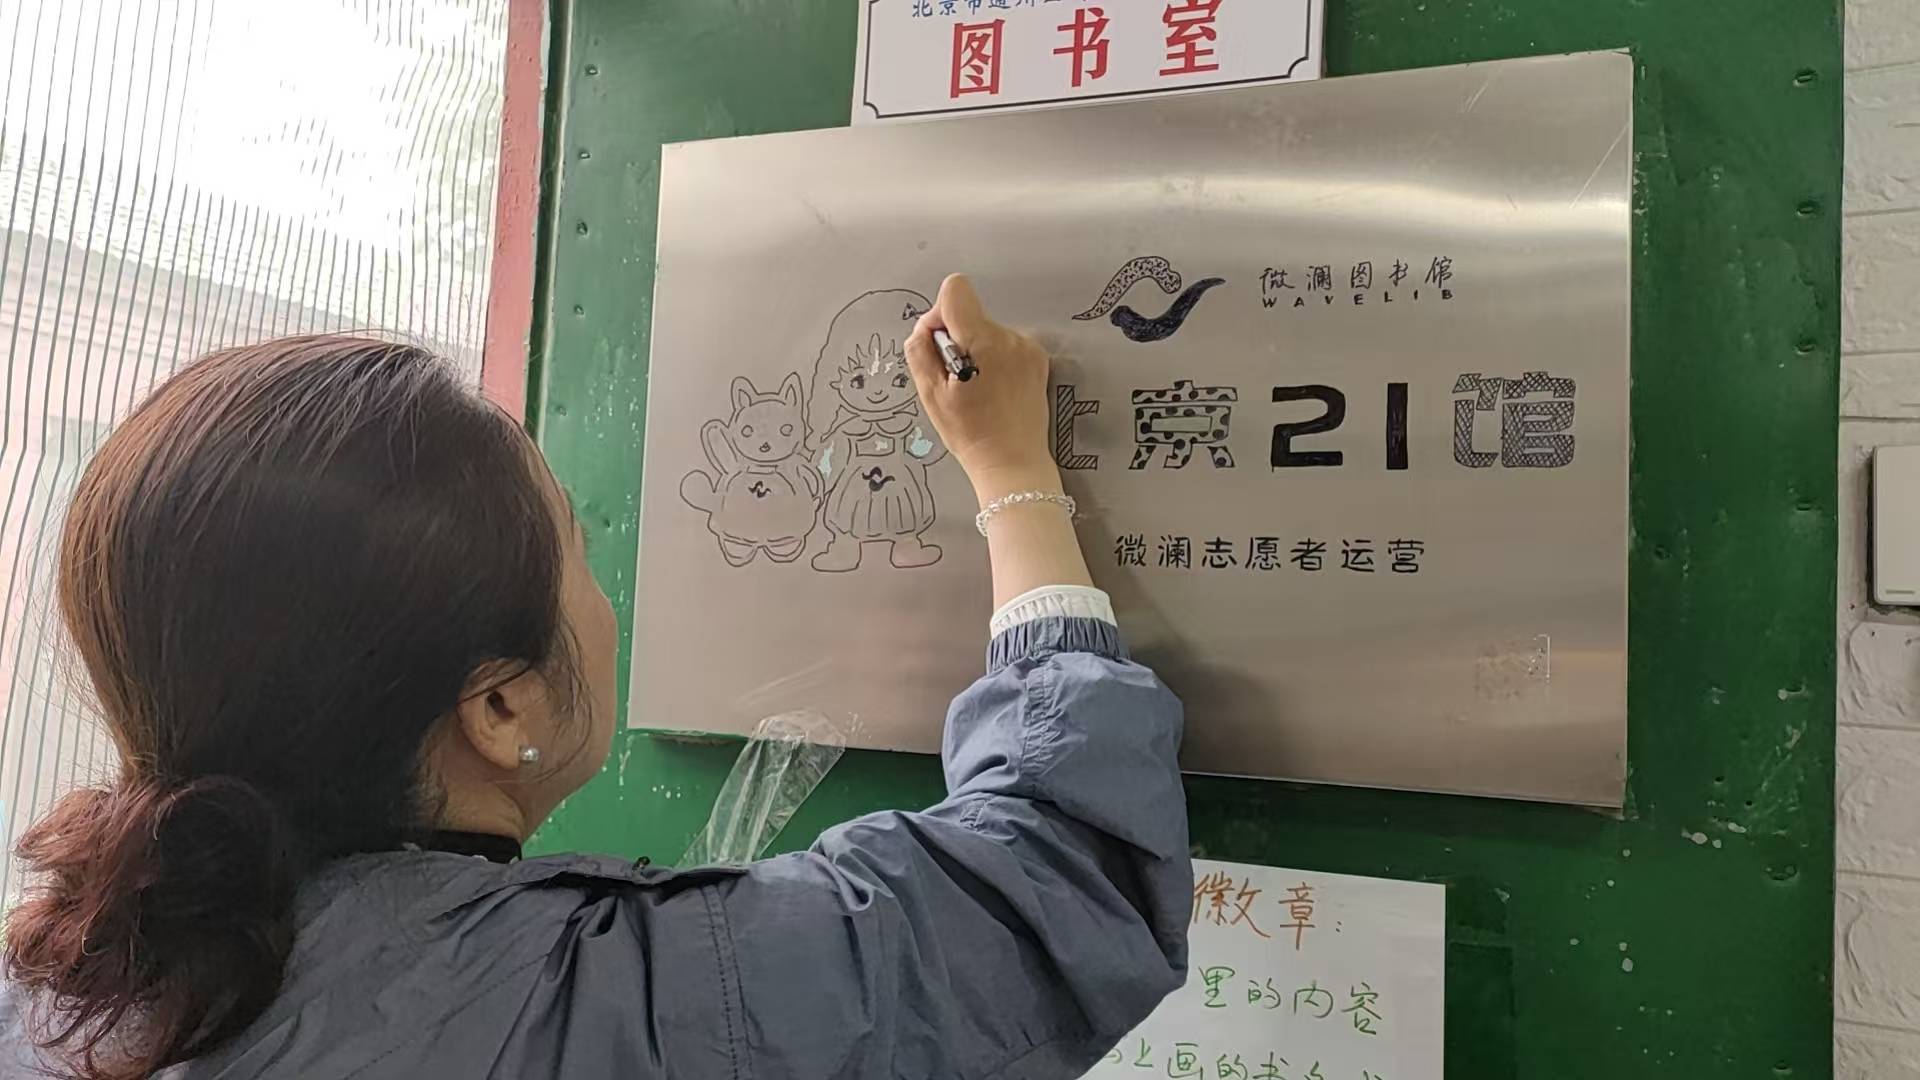 北京市通州区
图书室
微澜图书馆
WAVELIB
北京21馆
微澜志愿者运营
徽章：
里的内容
上画的书